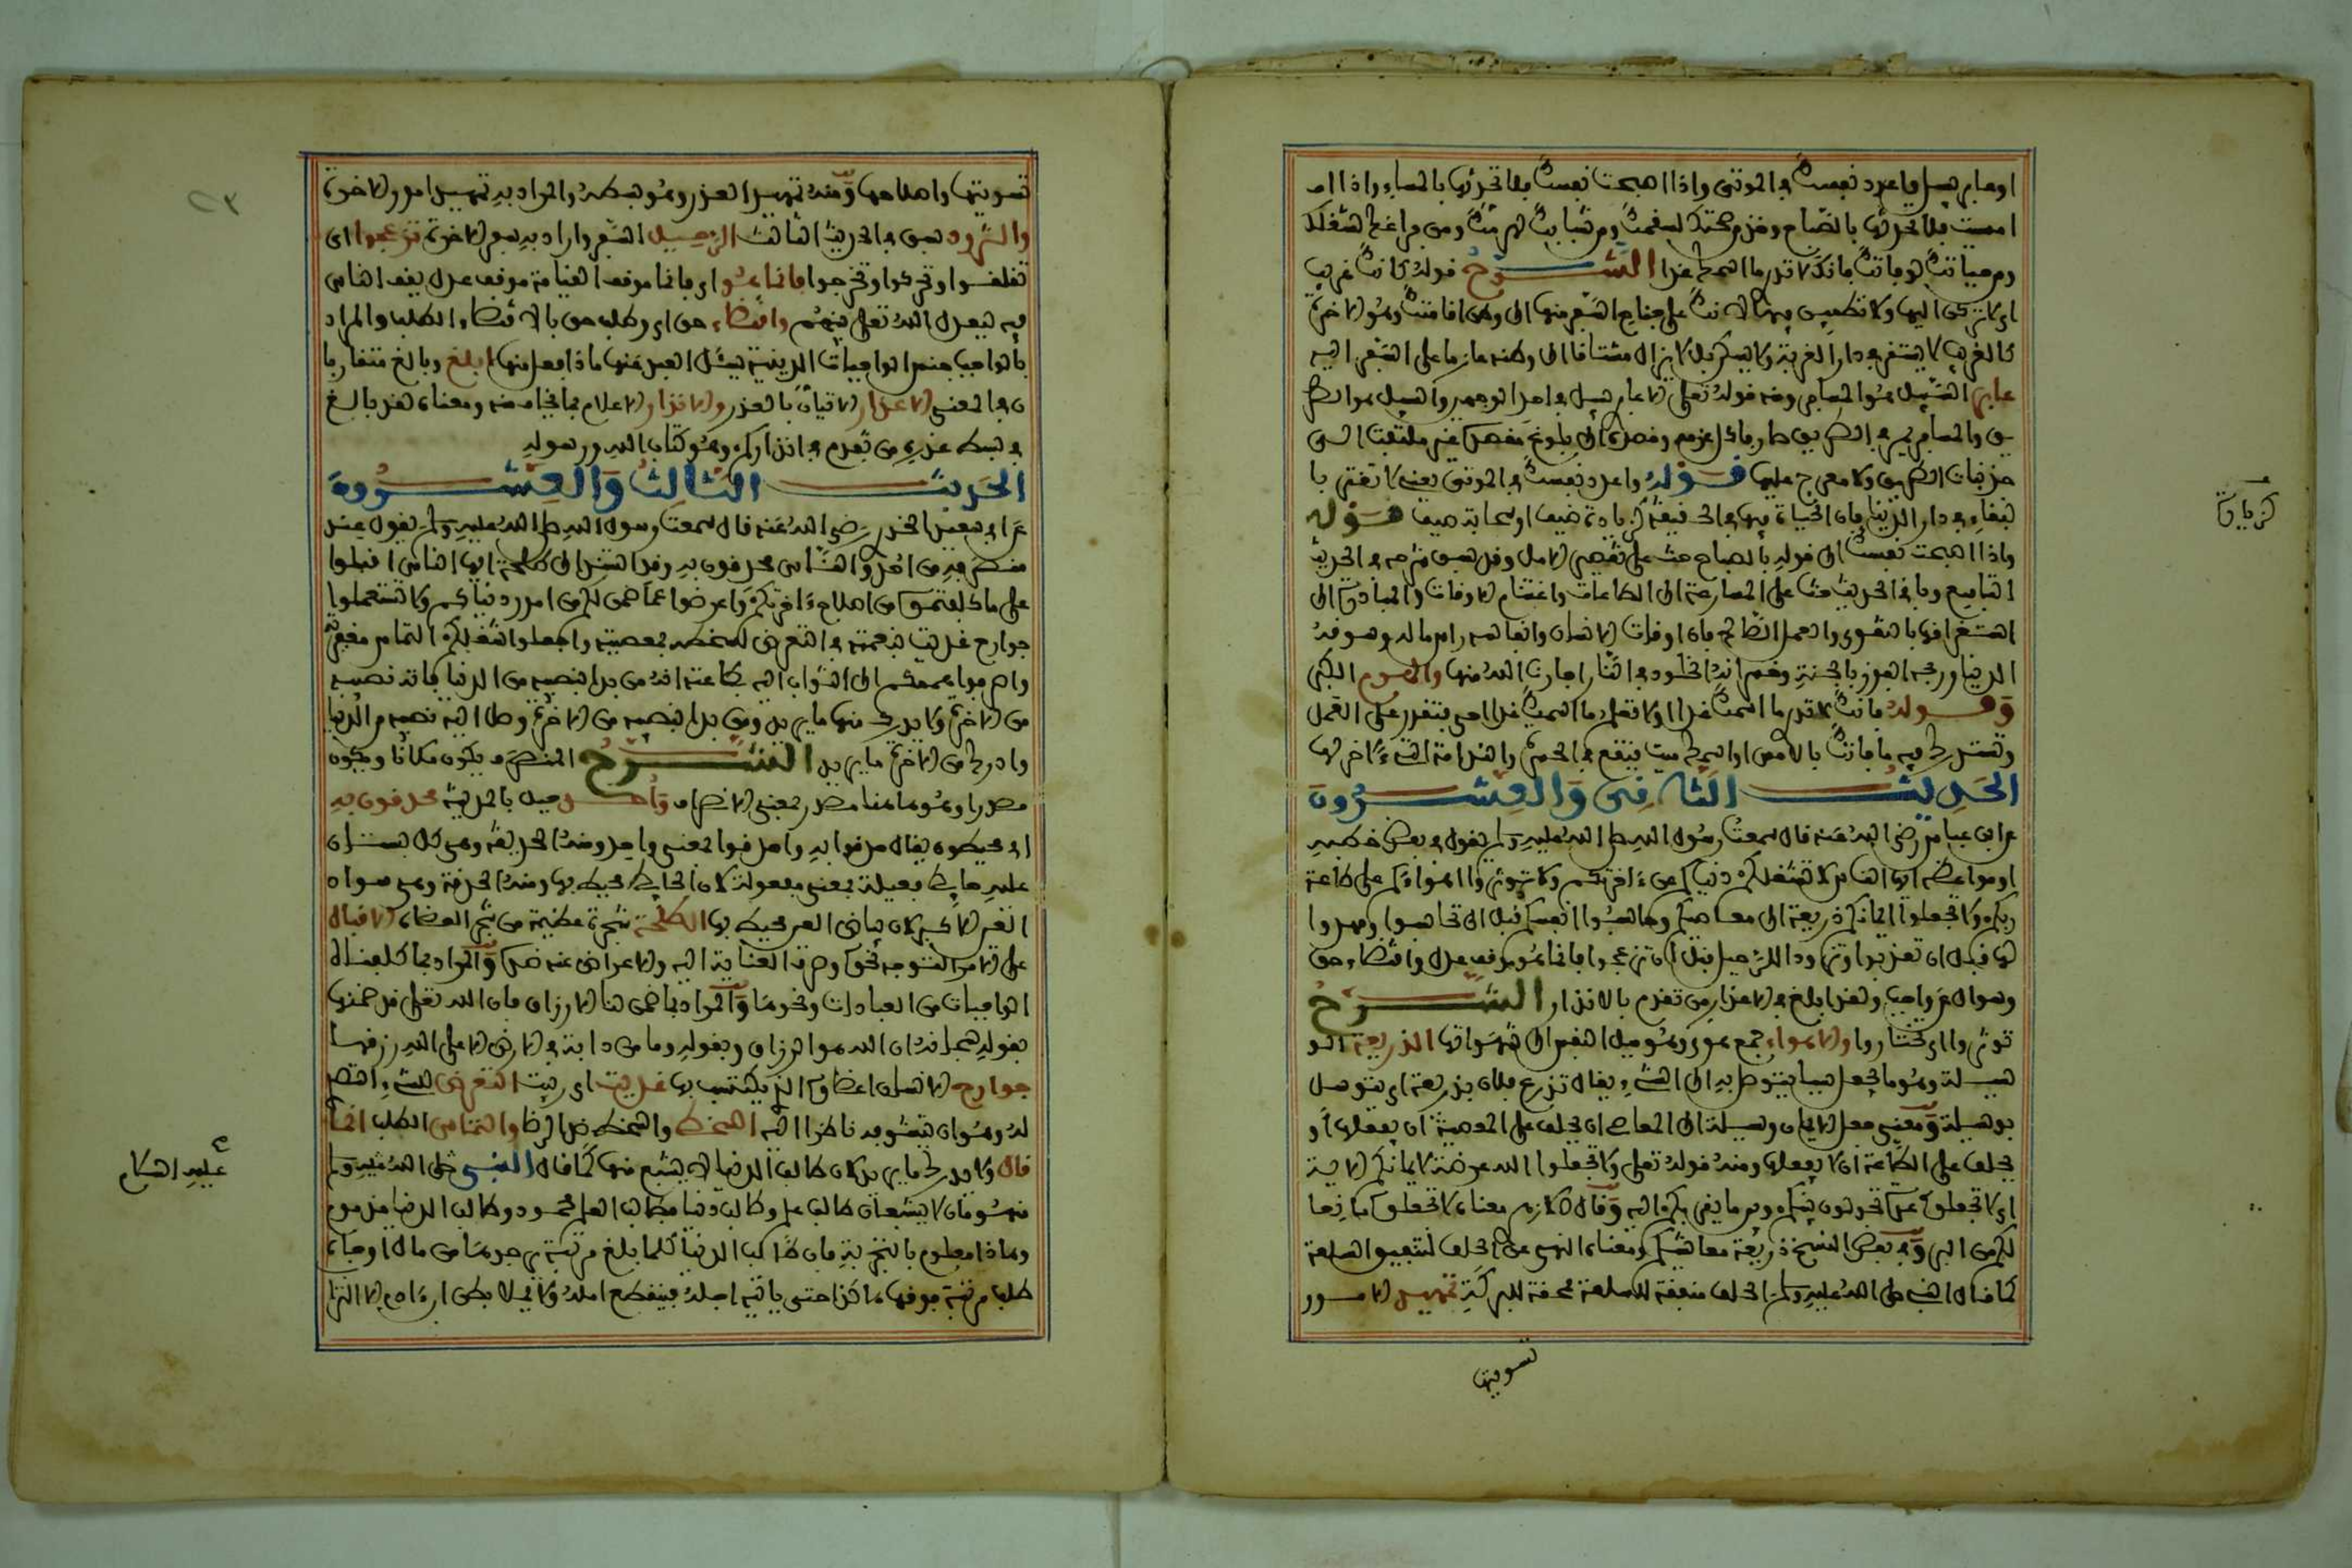 او عابر سبيل واعدد نفسك في الموتى واذا اصبحت نفسك فلا تحدثها بالمساء واذا ا
امست فلا تحدثها بالصباح وخذ من صحتك لسقمك ومن شبابك لهرمك ومن فراغك لشغلك
ومن حياتك لوفاتك فانك لا تدري ما اسمك غدا الشرح قوله كانك غريب
اي لا تركن اليها ولا تطمئن فيها لانك على جناح السفر منها الى وطن اقامتك وهو الاخرة
كالغريب لا يستقر في دار الغربة ولا يسكن بل لا يزال مشتاقا الى وطنه عازما على السفر اليه
عابر السبيل هو المسافر ومنه قوله تعالى الا عابر سبيل في احد الوجهين والسبيل هو الطر
يق والمسافر يمر في الطريق
الطريق ولا معرج عليها قوله واعدد نفسك في الموتى يعني لا تغتر با
لبقاء في دار الدنيا فان الحياة فيها في الحقيقة كزيادة ضيف او سحابة صيف قوله
واذا اصبحت نفسك الى قوله بالصباح حث على تقصير الامل وقد سبق شرحه في الحديث
التاسع وباقي الحديث حث على المسارعة الى الطاعات واغتنام الاوقات والمبادرة الى
استغراقها بالتقوى والعمل الصالح فان اوقات الانسان وانفاسه راس ماله وهو قد
الدنيا وربحه الفوز بالجنة وخسرانه الخلود في النار اجارنا الله منها والهرم الكبر
وقوله فانك لا تدري ما اسمك غدا اي لا تعلم ما اسمك غدا احي فتقدر على العمل
وتستدرك فيه ما فاتك بالامس او اسمك ميت فتقع في الحسرة والندامة التي لا اخر لها
الحديث الثاني والعشرون
عن ابن عباس رضي الله عنه قال سمعت رسول الله صلى الله عليه وسلم يقول في بعض خطبه
او مواعظه ايها الناس لا تشغلكم دنياكم عن ءاخرتكم ولا تؤثروا اهواءكم على طاعة
ربكم ولا تجعلوا ايمانكم ذريعة الى معاصيكم وحاسبوا انفسكم قبل ان تحاسبوا ومهدوا
لها قبل ان تعذبوا وتزودوا للرحيل قبل ان تزعجوا فانما هو موقف عدل واقتضاء حق
وسوال عن واجب ولقد ابلغ في الاعذار من تقدم بالانذار الشرح
تؤثروا اي تختاروا والاهواء جمع هوى وهو ميل النفس الى شهواتها الذريعة الو
سيلة وهو ما يجعل سببا يتوصل به الى الشيء يقال تذرع فلان بذريعة اي توسل
بوسيلة ومعنى جعل الايمان وسيلة الى المعاصي ان يحلف على المعصية ان يفعلها او
يحلف على الطاعة ان لا يفعلها ومنه قوله تعالى ولا تجعلوا الله عرضة لايمانكم الاية
معناه لا تجعلوه مانعا
لكم من البر وفي بعض النسخ ذريعة معاشكم ومعناه النهي عن الحلف لتنفيق السلعة
كما قال النبي صلى الله عليه وسلم الحلف منفقة للسلعة ممحقة للبركة تمهيد الامور
تسويتها
تسويتها واصلاحها ومنه تمهيد العذر وهو بسطه والمراد به تمهيد امور الاخرة
والتزود سبق في الحديث الثالث الرحيل السفر واراد به سفر الاخرة تزعجوا اي
تقلقوا وتحركوا وتخرجوا فانما هو اي فانما موقف القيامة موقف عدل يقف الناس
فيه ليعدل الله تعالى بينهم واقتضاء حق اي وطلب حق بالاقتضاء الطلب والمراد
بالواجب جنس الواجبات الدينية يسئل العبد عنها ماذا فعل منها ابلغ وبالغ متقاربا
ن في المعنى الاعذار الاتيان بالعذر والانذار الاعلام بما يخاف منه ومعناه لقد بالغ
في بسط عذره من تقدم في انذاركم وهو كتاب الله ورسوله
الحديث الثالث والعشرون
عن ابي سعيد الخدري رضي الله عنه قال سمعت رسول الله صلى الله عليه وسلم يقول عند
منصرفه من احد والناس محدقون به وقد استند الى طلحة ايها الناس اقبلوا
على ما كلفتموه من اصلاح ءاخرتكم واعرضوا عما ضمن لكم من امر دنياكم ولا تستعملوا
جوارح غذيت بنعمته في التعرض لسخطه بمعصيته واجعلوا شغلكم التماس مغفرته
واصرفوا هممكم الى التقرب اليه بطاعته انه من بدا بنصيبه من الدنيا فاته نصيبه
من الاخرة ولا يدرك منها ما يريد ومن بدا بنصيبه من الاخرة وصل اليه نصيبه من الدنيا
وادرك من الاخرة ما يريد الشرح المنصرف يكون مكانا ويكون
مصدرا وهو هاهنا مصدر بمعنى الانصراف واحد جبل بالمدينة محدقون به
اي محيطون يقال حدقوا به واحدقوا بمعنى واحد ومنه الحديقة وهي كل بستان
عليه حايط فعيلة بمعنى مفعولة لان الحايط محيط بها ومنه الحدقة وهي سواد
العين
الطلحة شجرة عظيمة من شجر العضاه الاقبال
على الامر التوجه نحوه وصرف العناية اليه والاعراض عنه ضده والمراد بما كلفناه
الواجبات من العبادات ونحوها والمراد بما ضمن هنا الارزاق فان الله تعالى قد ضمنها
بقوله سبحانه ان الله هو الرزاق وبقوله وما من دابة في الارض الا على الله رزقها
جوارح الانسان اعضاوه التي يكتسب بها غذيت اي ربيت التعرض للشيء التصد
السخط والسخط ضد الرضا والتماس الطلب انما
قال ولا يدرك ما يريد لان طالب الدنيا لا يشبع منها كما قال النبي صلى الله عليه وسلم
منهومان لا يشبعان طالب علم وطالب دنيا فطالب العلم محمود وطالب الدنيا مذموم
وهاذا معلوم بالتجربة فان طالب الدنيا كلما بلغ مرتبة يرجوها من مال او جاه
طلب مرتبة فوقها هاكذا حتى ياتيه اجله فينقطع امله ولا يملا بطن ابن ءادم الا التراب
عليه السلام
كزيادة